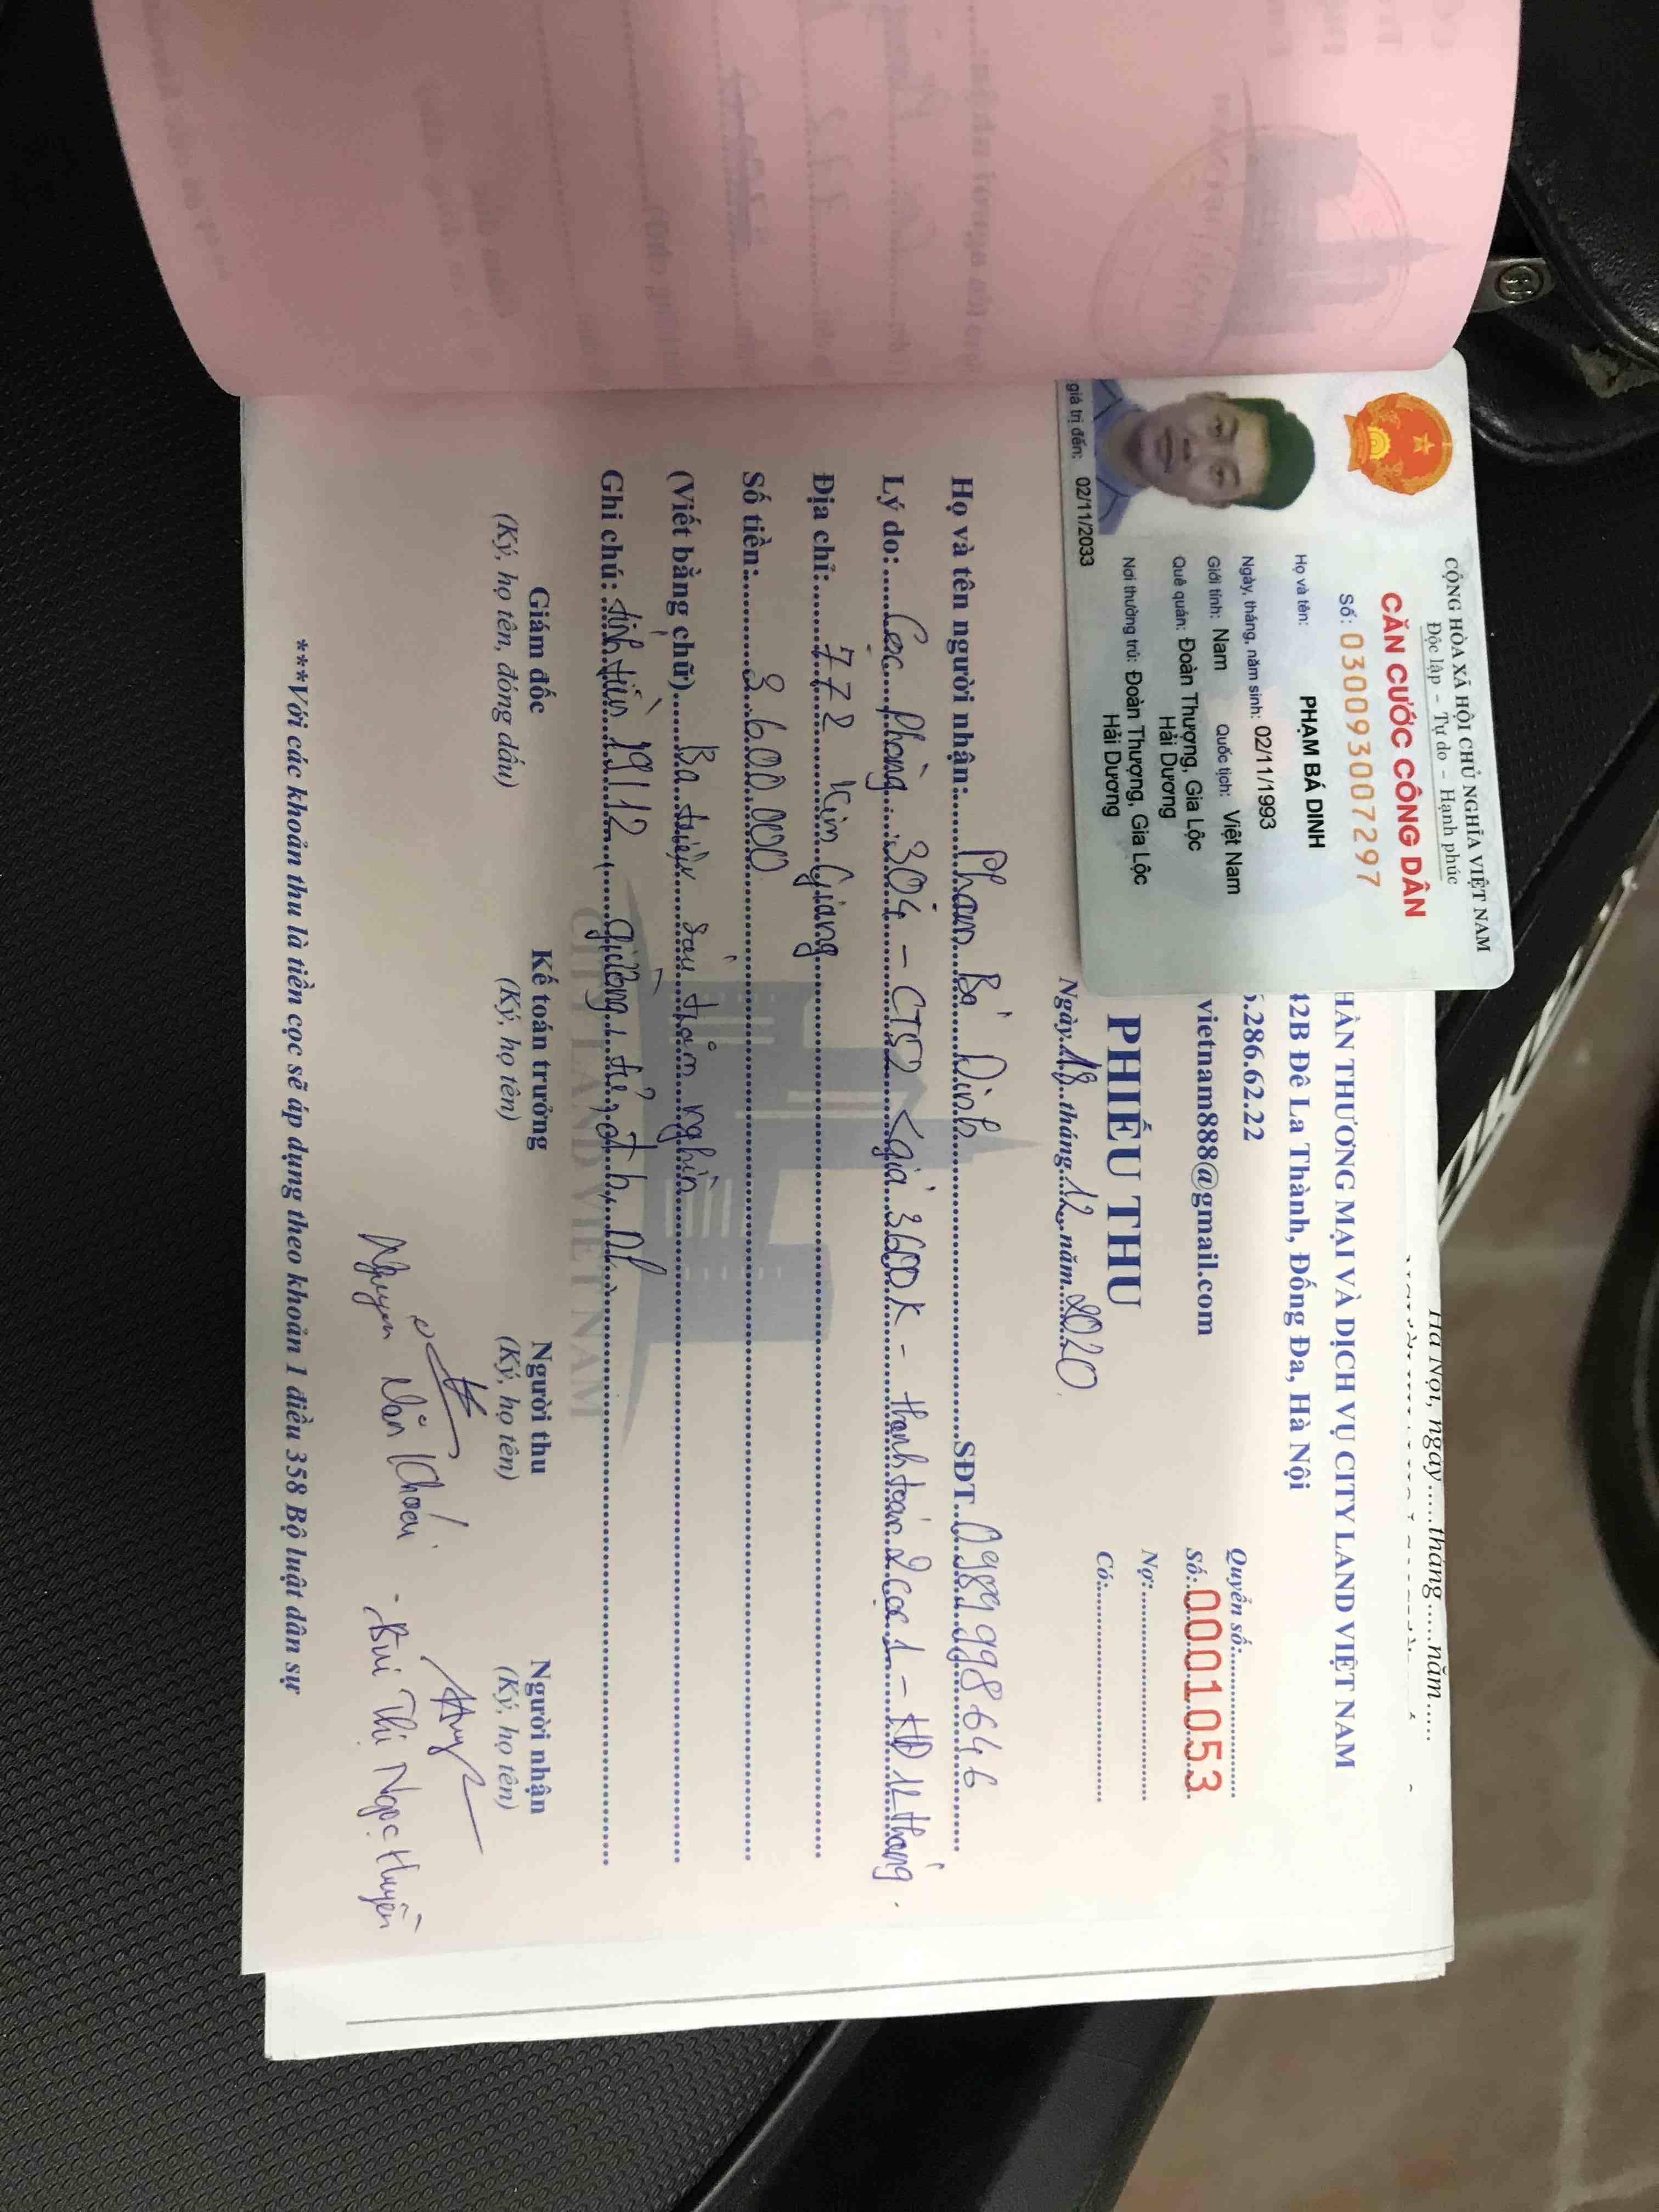 CỘNG HÒA XÃ HỘI CHỦ NGHĨA VIỆT NAM
Độc lập - Tự do - Hạnh phúc
CĂN CƯỚC CÔNG DÂN
Số: 030093007297
Họ và tên: PHẠM BÁ DINH
Ngày, tháng, năm sinh: 02/11/1993
Giới tính: Nam Quốc tịch: Việt Nam
Quê quán: Đoàn Thượng, Gia Lộc
Hải Dương
Nơi thường trú: Đoàn Thượng, Gia Lộc
Hải Dương
giá trị đến: 02/11/2033
Hà Nội, ngày......tháng.....năm.....
HÀN THƯƠNG MẠI VÀ DỊCH VỤ CITY LAND VIỆT NAM
42B Đê La Thành, Đống Đa, Hà Nội
6.286.62.22
vietnam888@gmail.com
Quyển số:
Số: 0001053
Nợ:
Có:
PHIẾU THU
Ngày 18 tháng 12 năm 2020
Họ và tên người nhận: Phạm Bá Dinh SĐT 0989998646
Lý do: Cọc phòng 304 - CTS2 < giá 3600K - thanh toán 2 cọc 1 - HĐ 12 tháng.
Địa chỉ: 772 Kim Giang
Số tiền: 3.600.000
(Viết bằng chữ) Ba triệu sáu trăm nghìn
Ghi chú: tính tiền 19/12, giường, tủ, đh, nl
CITY LAND VIET NAM
Giám đốc
(Ký, họ tên, đóng dấu)
Kế toán trưởng
(Ký, họ tên)
Người thu
(Ký, họ tên)
Người nhận
(Ký, họ tên)
Nguyễn Văn Khoái
- Bùi Thị Ngọc Huyền
***Với các khoản thu là tiền cọc sẽ áp dụng theo khoản 1 điều 358 Bộ luật dân sự